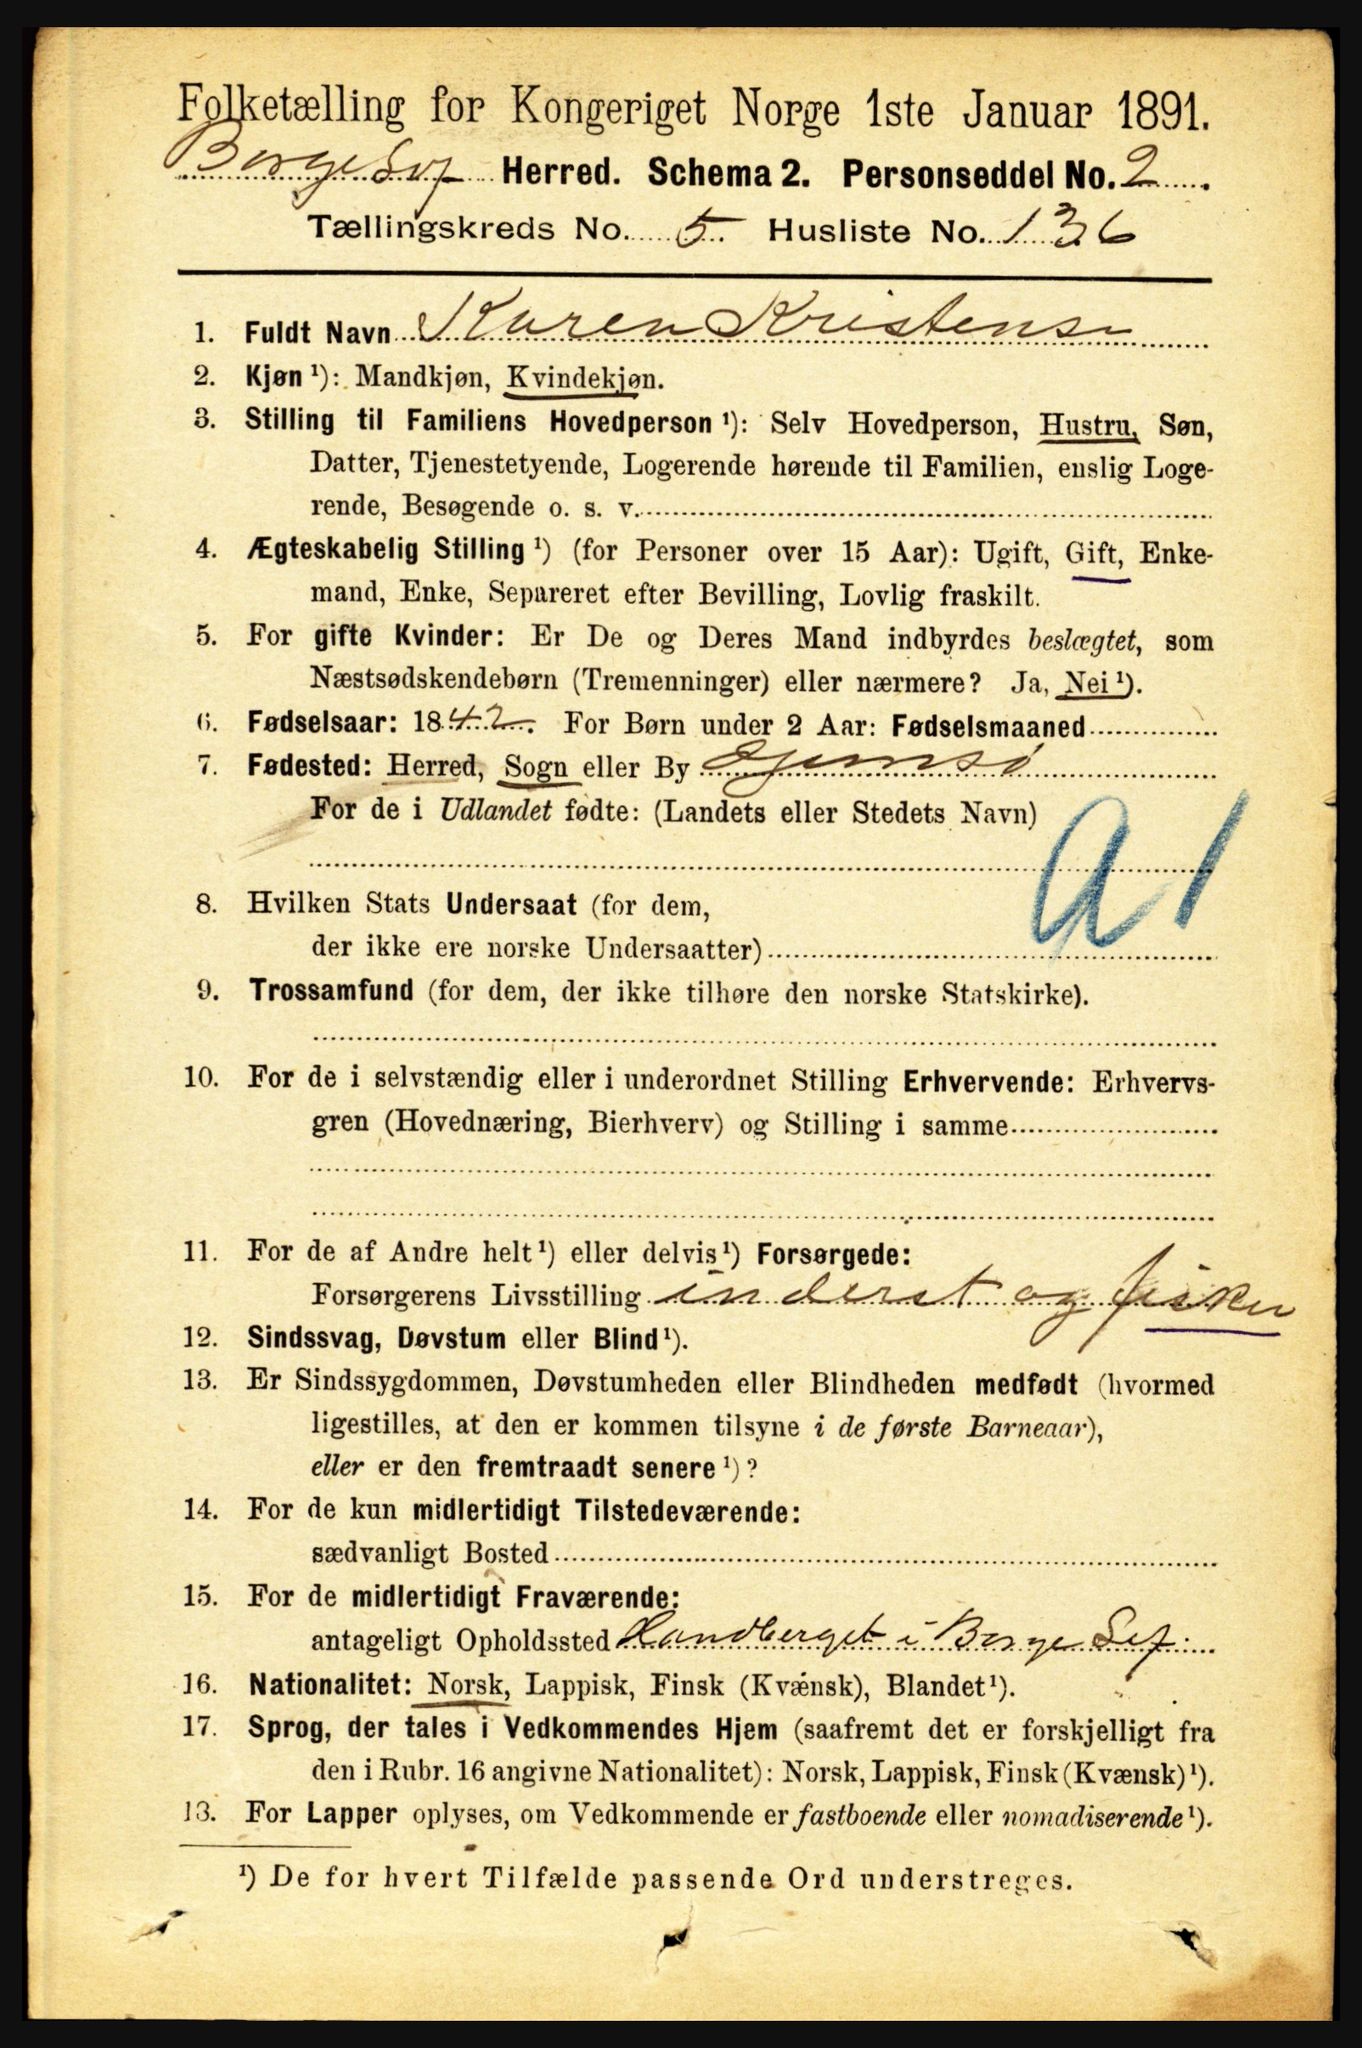 Folketælling for Kongeriget Norge 1ste Januar 1891.
Borge Lof Herred. Schema 2. Personseddel No. 2
Tællingskreds No. 5. Husliste No. 136
1. Fuldt Navn Karen Kristens
2. Kjøn ¹): Mandkjøn, Kvindekjøn.
3. Stilling til Familiens Hovedperson ¹): Selv Hovedperson, Hustru, Søn,
Datter, Tjenestetyende, Logerende hørende til Familien, enslig Loge-
rende, Besøgende o. s. v.
4. Ægteskabelig Stilling ¹) (for Personer over 15 Aar): Ugift, Gift, Enke-
mand, Enke, Separeret efter Bevilling, Lovlig fraskilt.
5. For gifte Kvinder: Er De og Deres Mand indbyrdes beslægtet, som
Næstsødskendebørn (Tremenninger) eller nærmere? Ja, Nei ¹).
6. Fødselsaar: 1842. For Børn under 2 Aar: Fødselsmaaned
7. Fødested: Herred, Sogn eller By Gjemsø
For de i Udlandet fødte: (Landets eller Stedets Navn)
a 1
8. Hvilken Stats Undersaat (for dem,
der ikke ere norske Undersaatter)
9. Trossamfund (for dem, der ikke tilhøre den norske Statskirke).
10. For de i selvstændig eller i underordnet Stilling Erhvervende: Erhvervs-
gren (Hovednæring, Bierhverv) og Stilling i samme
11. For de af Andre helt ¹) eller delvis ¹) Forsørgede:
Forsørgerens Livsstilling inderst og fisker
12. Sindssvag, Døvstum eller Blind ¹).
13. Er Sindssygdommen, Døvstumheden eller Blindheden medfødt (hvormed
ligestilles, at den er kommen tilsyne i de første Barneaar),
eller er den fremtraadt senere ¹)?
14. For de kun midlertidigt Tilstedeværende:
sædvanligt Bosted
15. For de midlertidigt Fraværende:
antageligt Opholdssted i Borge Lof
16. Nationalitet: Norsk, Lappisk, Finsk (Kvænsk), Blandet ¹).
17. Sprog, der tales i Vedkommendes Hjem (saafremt det er forskjelligt fra
den i Rubr. 16 angivne Nationalitet): Norsk, Lappisk, Finsk (Kvænsk) ¹).
13. For Lapper oplyses, om Vedkommende er fastboende eller nomadiserende ¹).
¹) De for hvert Tilfælde passende Ord understreges.